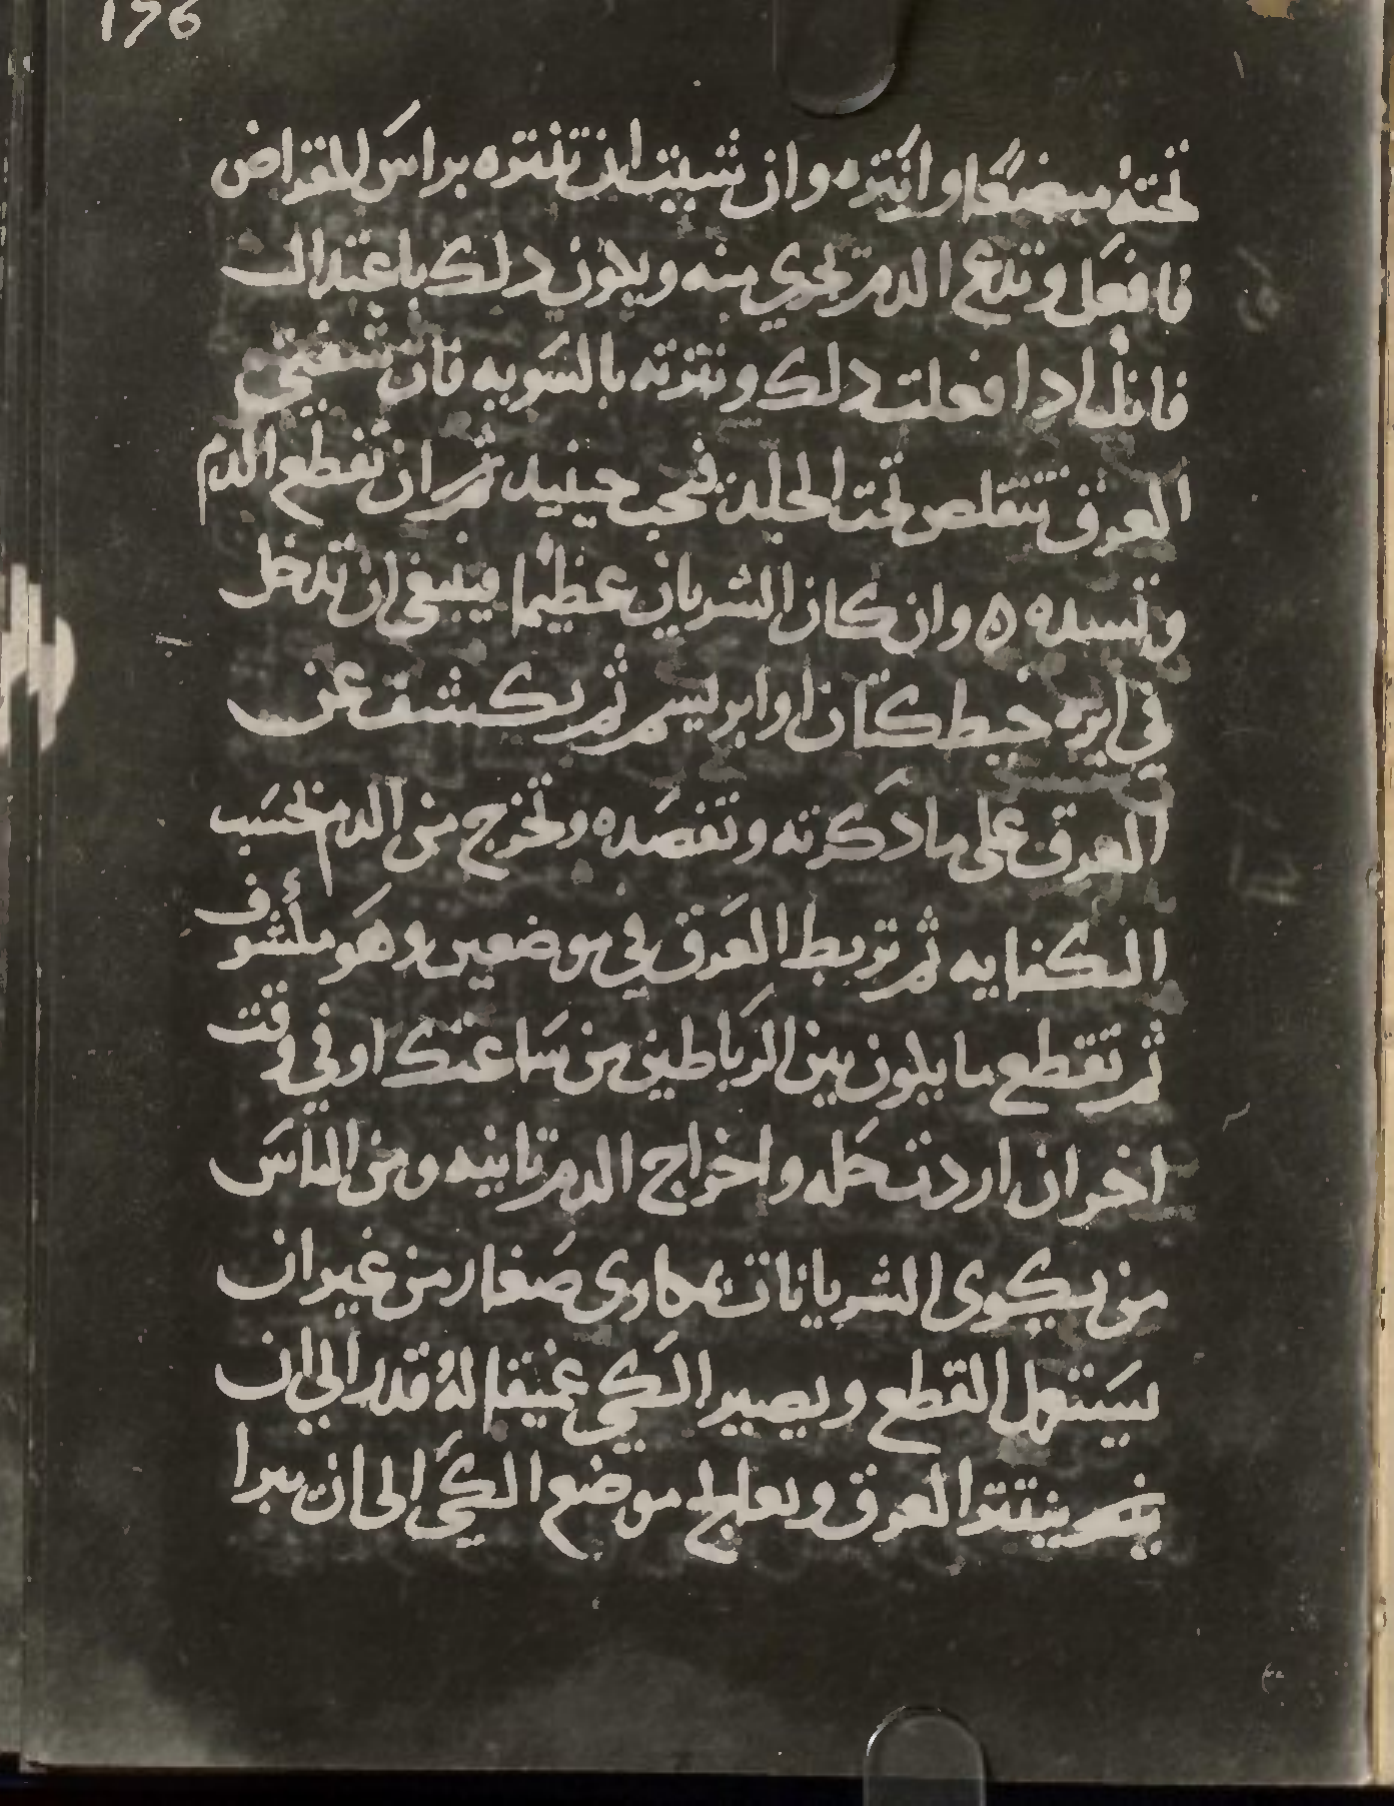 196
تحته مبضعا وانتره وان شيت ان تنتره براس المقراض
فافعل وتدع الدم تجري منه ويكون دلك باعتدال
فانك ادا فعلت دلك ونترته بالسويه فان شفتي
العرق تتقلص تحت الجلد فيجب حينيد ثم ان تقطع الدم
وتسده ه وان كان الشريان عظيما فينبغي ان تدخل
في ابره خيط كتان او ابريسم ثم يكشف عن
العرق على ما دكرته وتفصده وتخرج من الدم بحسب
الكفايه ثم تربط العرق في موضعين وهو مكشوف
ثم تقطع ما يكون بين الرباطين من ساعتك او في وقت
اخر ان اردت حله واخراج الدم تانيه ومن الناس
من يكوي الشريانات بمكاوي صغار من غير ان
يستعمل القطع ويصير الكي عميقا له قدر الى ان
ينتتر العرق ويعالج موضع الكي الى ان يبرا